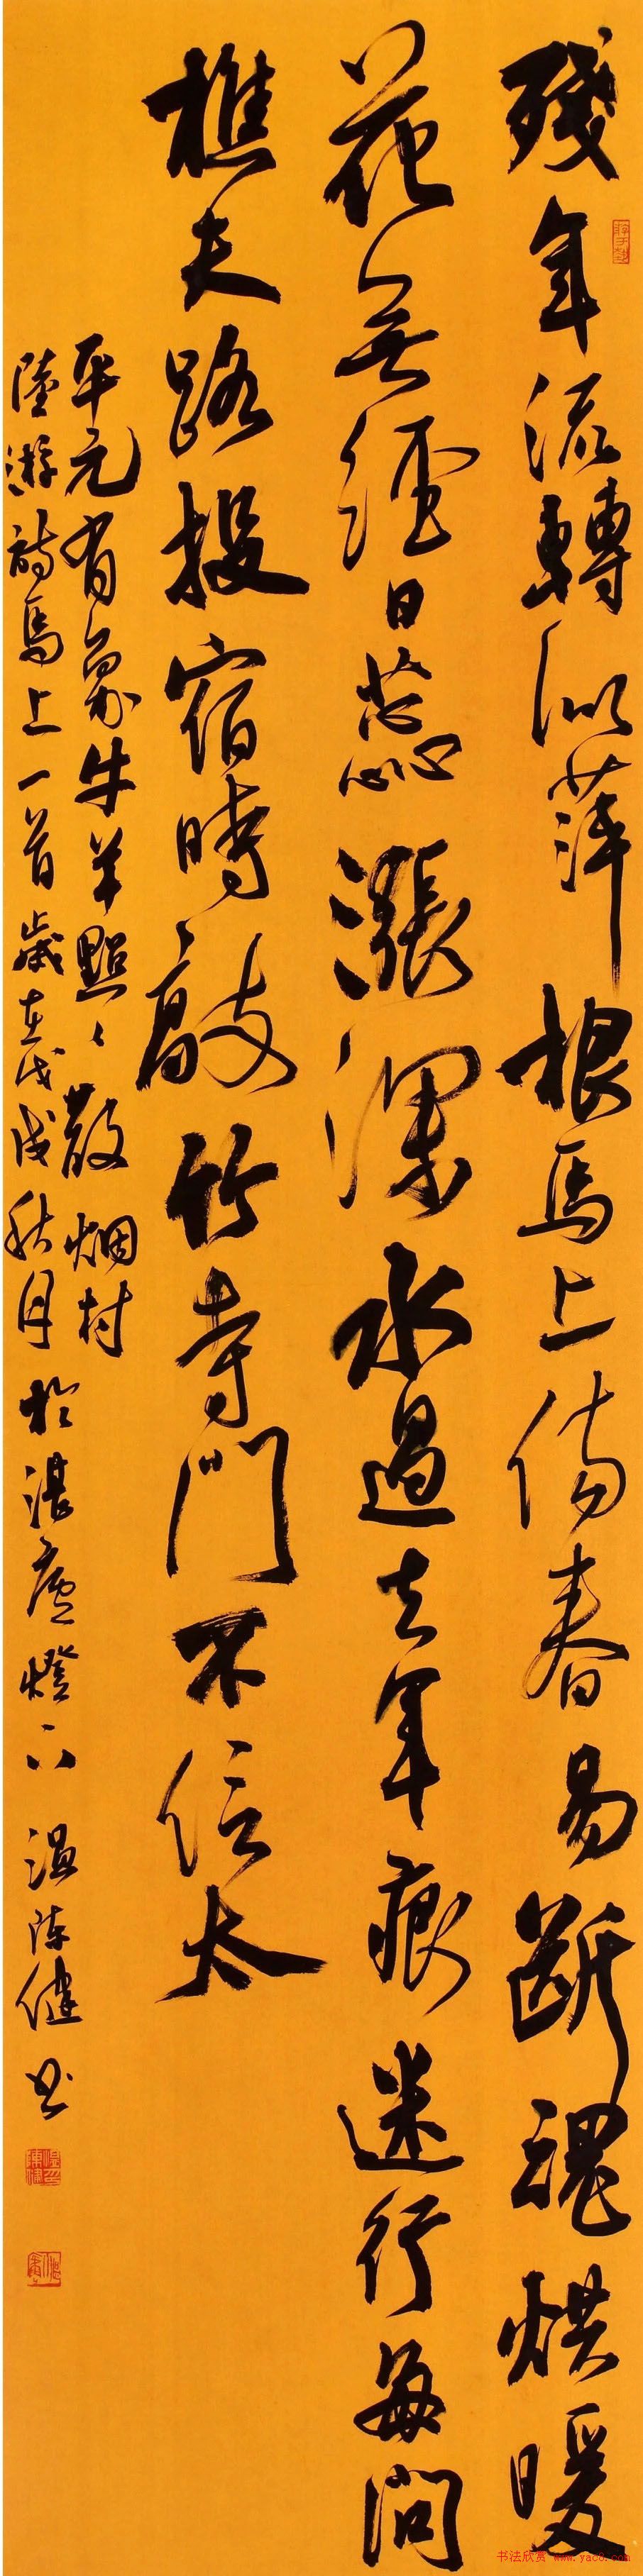 殘年流轉似萍根馬上傷春易斷魂烘暖
花無經日蕊漲深水過去年痕迷行每問
樵夫路投宿時敲竹寺門不信太
平元有象牛羊點點散烟村
陸游詩馬上一首歲在戊戌秋月於湛廬燈下温陳健書
书法欣赏 www.yac8.com